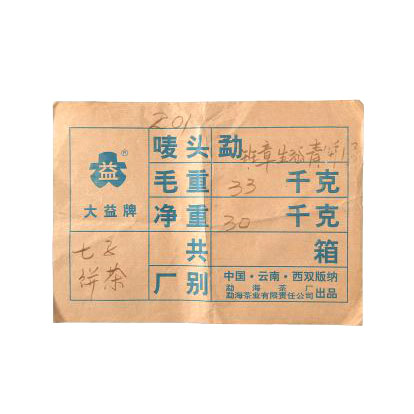 201
唛头 勐 班章生态青饼
益®
毛重 33 千克
大益牌
净重 30 千克
七子
饼茶
共 箱
厂别
中国·云南·西双版纳
勐海茶厂
勐海茶业有限责任公司 出品